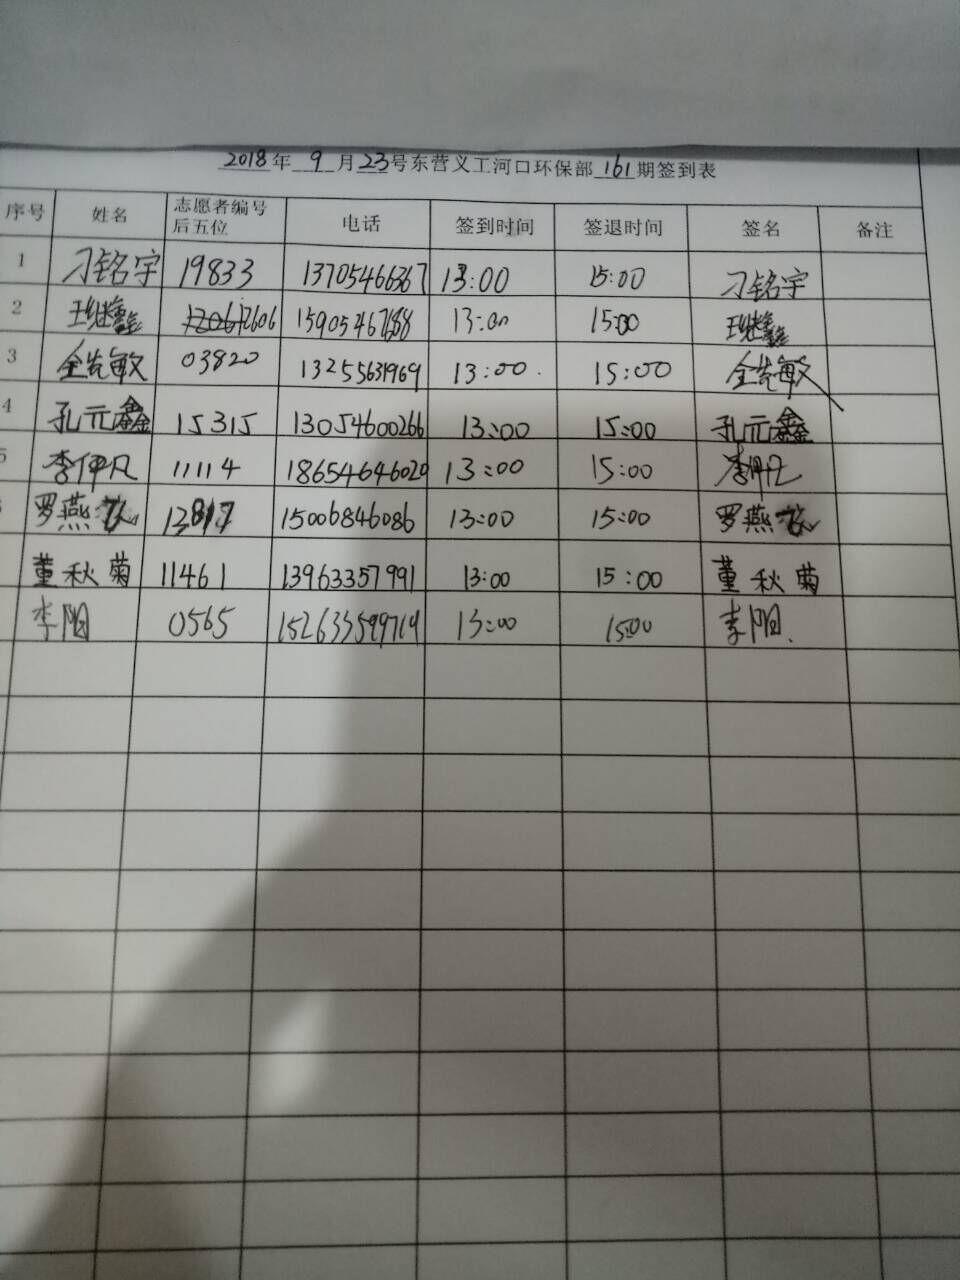 2018年 9 月23号东营义工河口环保部 161 期签到表
序号 姓名 志愿者编号后五位 电话 签到时间 签退时间 签名 备注
1 刁铭宇 19833 13705466367 13:00 15:00 刁铭宇
2 王继鑫 12606 13:00 15:00 王继鑫
3 全先敏 03820 13255631969 13:00 15:00 全先敏
4 孔元鑫 15315 13054600266 13:00 15:00 孔元鑫
5 李伊凡 11114 18654646020 13:00 15:00
罗燕 15006846086 13:00 15:00 罗燕
董秋菊 11461 13963357991 13:00 15:00 董秋菊
李阳 0565 13:00 15:00 李阳